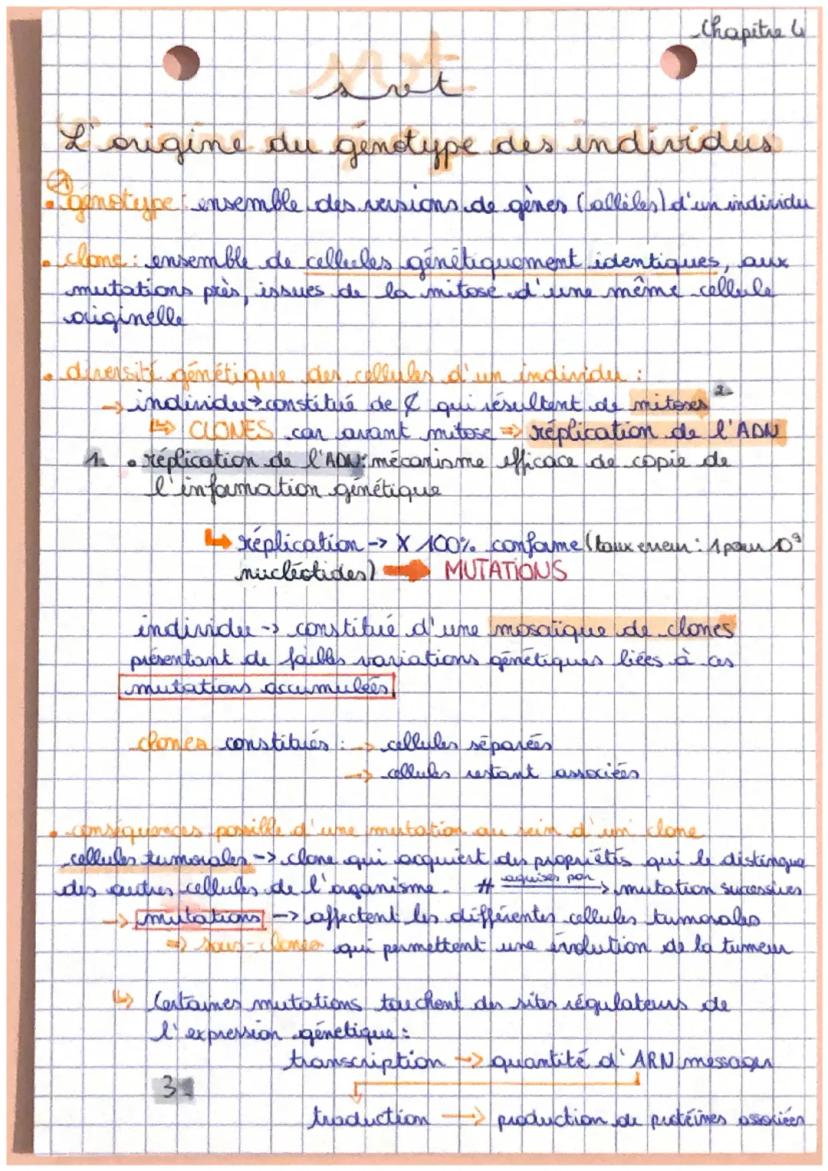 Chapitre 4
svt
L'origine du génotype des individus
• génotype : ensemble des versions de gènes (allèles) d'un individu
• clone : ensemble de cellules génétiquement identiques, aux
mutations près, issues de la mitose d'une même cellule
originelle
• diversité génétique des cellules d'un individu :
→ individu → constitué de ₵ qui résultent de mitoses 2.
↳ CLONES car avant mitose ⇒ réplication de l'ADN
1. • réplication de l'ADN : mécanisme efficace de copie de
l'information génétique
↳ réplication → X 100% conforme (taux erreur : 1 pour 10⁹
nucléotides) → MUTATIONS
individu → constitué d'une mosaïque de clones
présentant de faibles variations génétiques liées à ces
mutations accumulées
clones constitués : → cellules séparées
→ cellules restant associées
• conséquences possible d'une mutation au sein d'un clone
cellules tumorales → clone qui acquiert des propriétés qui le distingue
des autres cellules de l'organisme. # acquises par → mutation successives
→ mutations → affectent les différentes cellules tumorales
⇒ sous-clones qui permettent une évolution de la tumeur
↳ Certaines mutations touchent des sites régulateurs de
l'expression génétique :
transcription → quantité d'ARN messager
3.
traduction → production de protéines associées